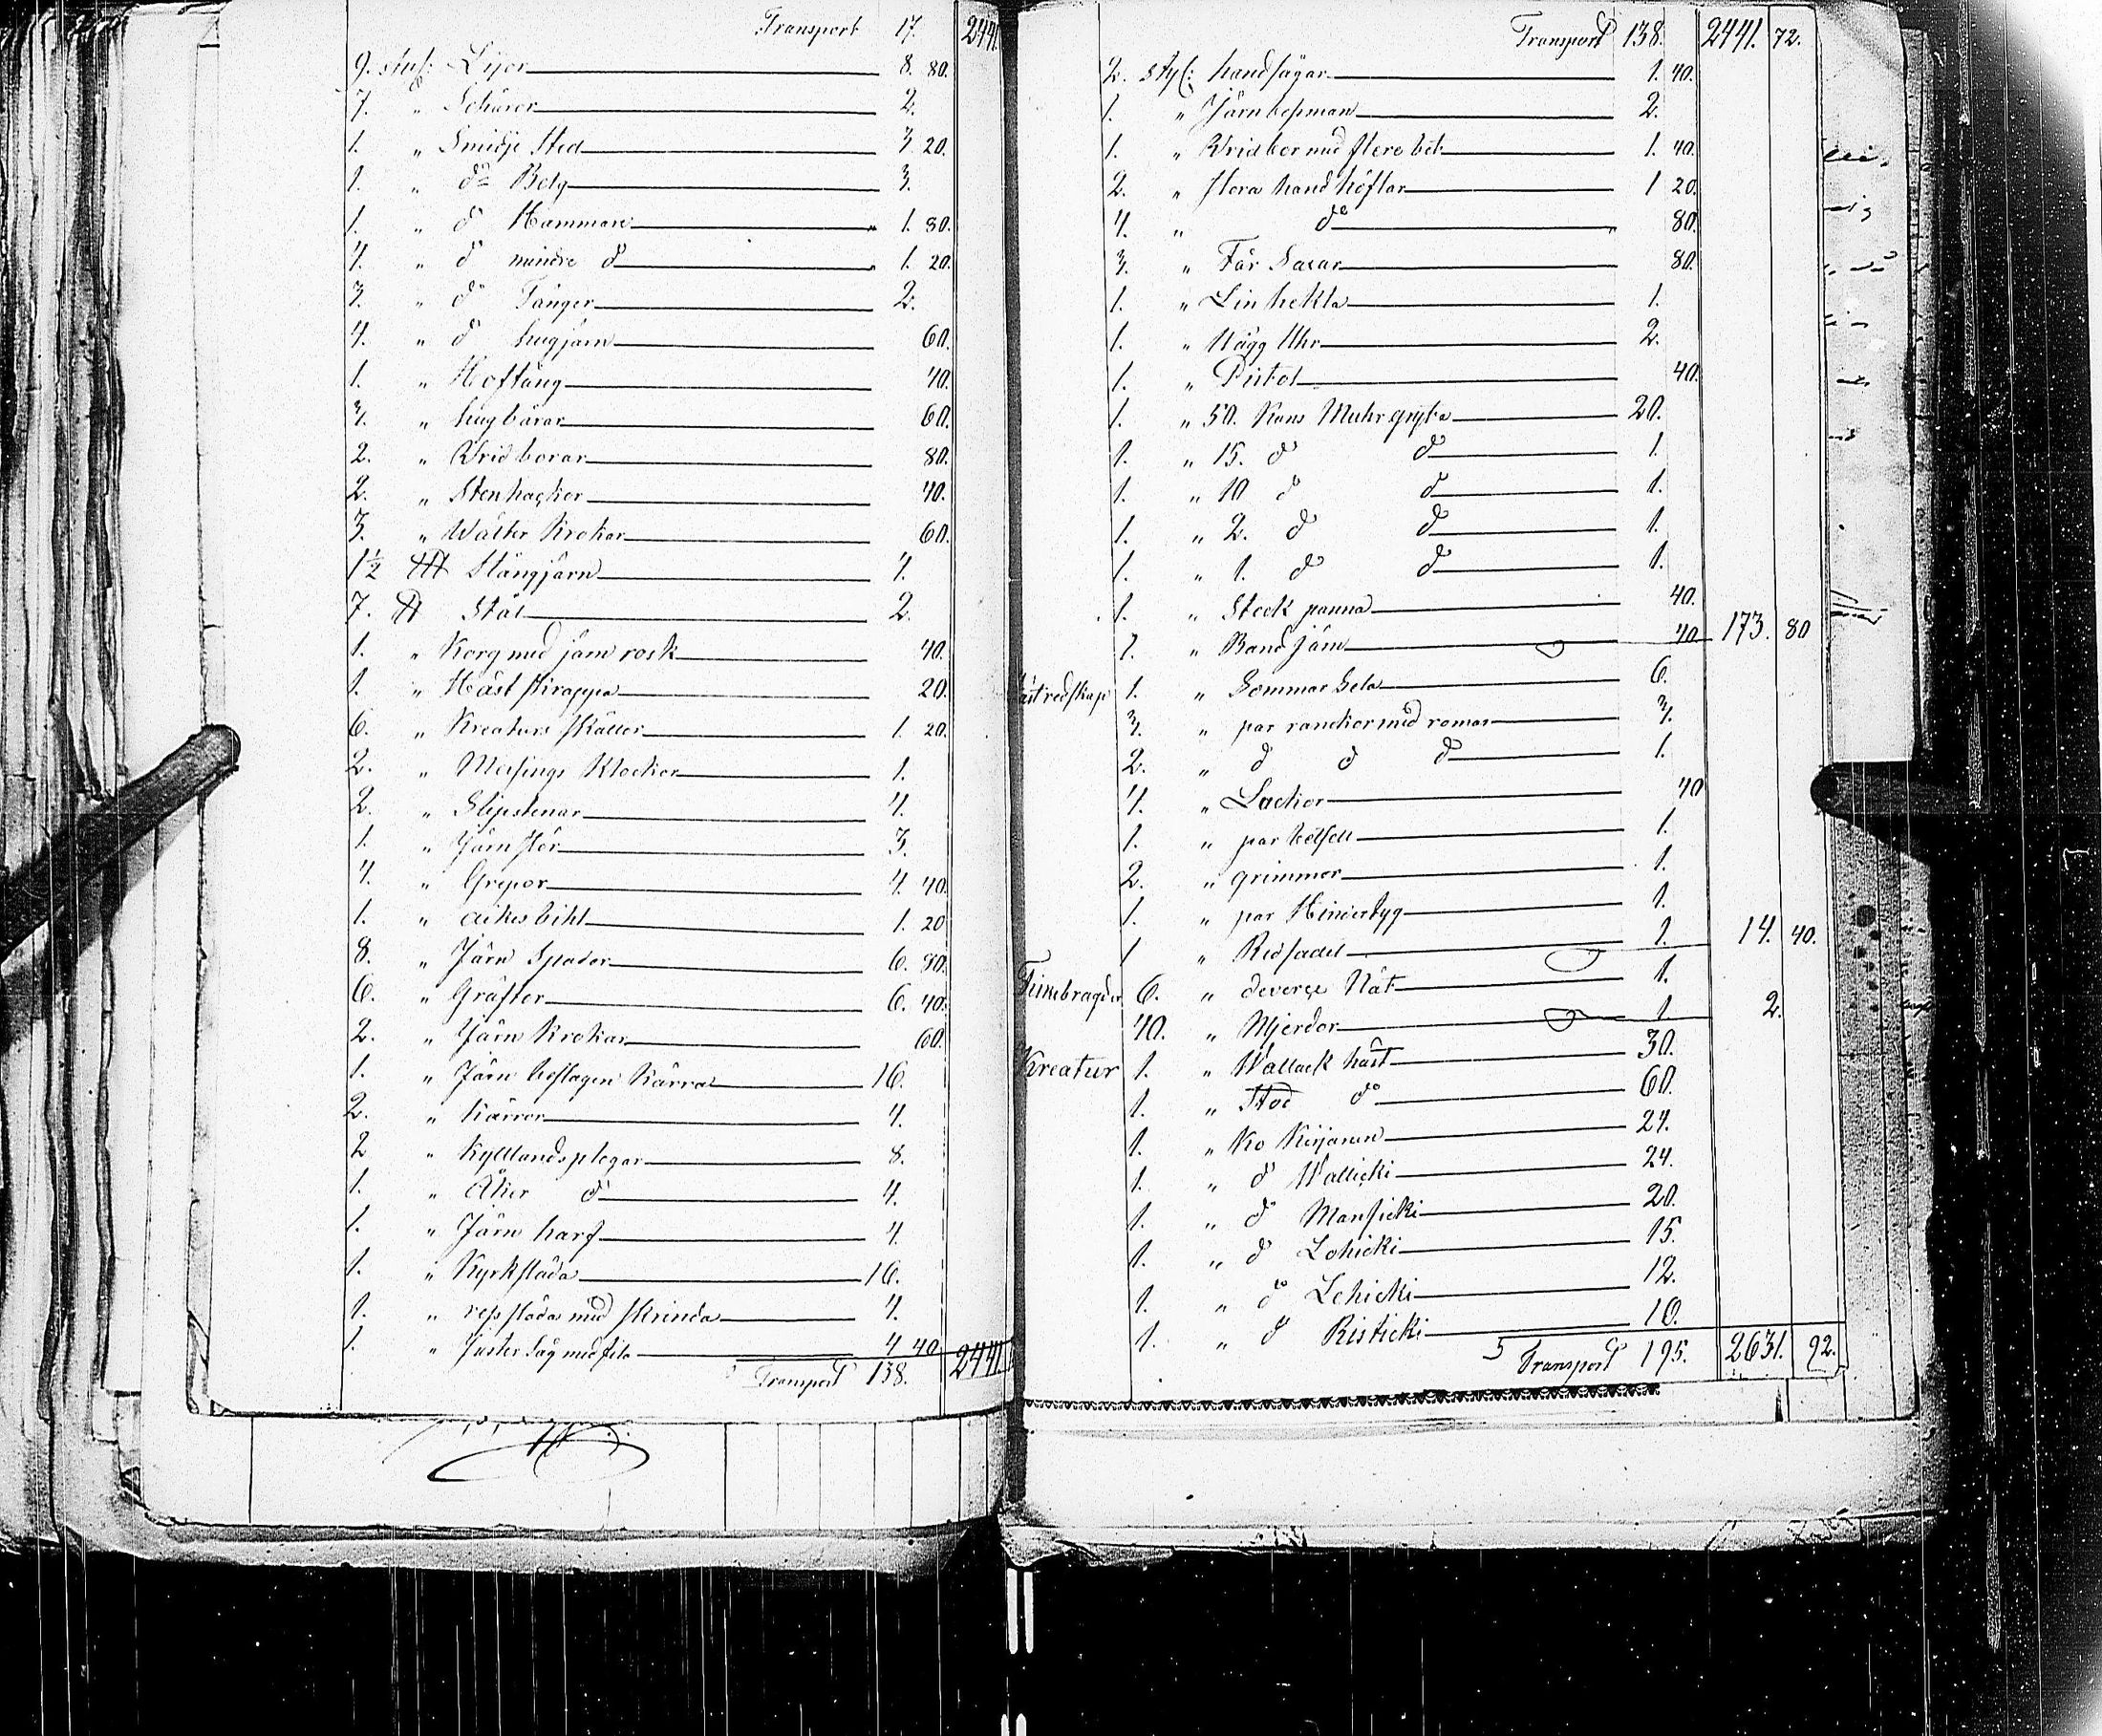 Transport 17. 2441.
9. styc: Lijor 8. 80.
7. " Schäror 2.
1. " Smidje Sted 3 20.
1. " do Belg 3.
1. " do Hammare 1. 80.
4. " do mindre do 1. 20.
3. " do Tänger 2.
4. " do hugjärn 60.
1. " Hoftång 40.
3. " hugbårar 60.
2. " Wridborar 80.
2. " Stenhackor 40.
3. " Wälter Krokar 60.
1½ Stångjärn 4.
7. Stål 2.
1. " Korg med järn rosk 40.
1. " Häst skrappa 20.
6. " Kreaturs skällor 1. 20.
2. " Messings Klockor 1.
2. " Slipstenar 4.
1. " Järn stör 3.
4. " Grepor 4. 40.
1. " aikesbihl 1. 20
8. " Järn Spador 6. 80.
6. " Gräftor 6. 40.
2. " Järn Krokar 60.
1. " Järn beslagen Kärra 16.
2. " Kärror 4.
2 " Kyttlandsplogar 8.
1. " Åker do 4.
1. " Järn harf 4.
1. " Kyrksläda 16.
1. " resslädar med skrinda 4.
1. " Juster Såg med fila 4 40.
Transport 138. 2441
Transport 138. 2441. 72.
2. styc: handsågar 1. 40.
1. " Järn besman 2.
1. " Wridbor med flere bet 1. 40.
2. " stora handhöflar 1 20.
4. " do 80.
3. " Får Saxar 80.
1. " Linhekla 1.
1. " Wägg Uhr 2.
1. " Pistol 40.
1. " 50. Kans Muhrgryta 20.
1. " 15. do do 1.
1. " 10 do do 1.
1. " 2. do do 1.
1. " 1. do do 1.
1. " Steck panna 40.
1. " Band järn 40 173. 80
ästredskap 1. " Sommar Sela 6.
3. " par ranckor med romar 3.
2. " do do do 1.
4. " Lackor 40
1. " par betsell 1.
2. " grimmor 1.
1. " par Hindertyg 1.
1 " Ridsadel 1. 14. 40.
Fiskebragder 6. " deverse Nät 1.
40. " Mjerdor 1 2.
Kreatur 1. " Wallack häst 30.
1. " Sto do 60.
1. " Ko Kirjanen 24.
1. " do Wallicki 24.
1. " do Mansicki 20.
1. " do Lohicki 15.
1. " do Lehicki 12.
1. " do Risticki 10.
Transport 195. 2631. 92.